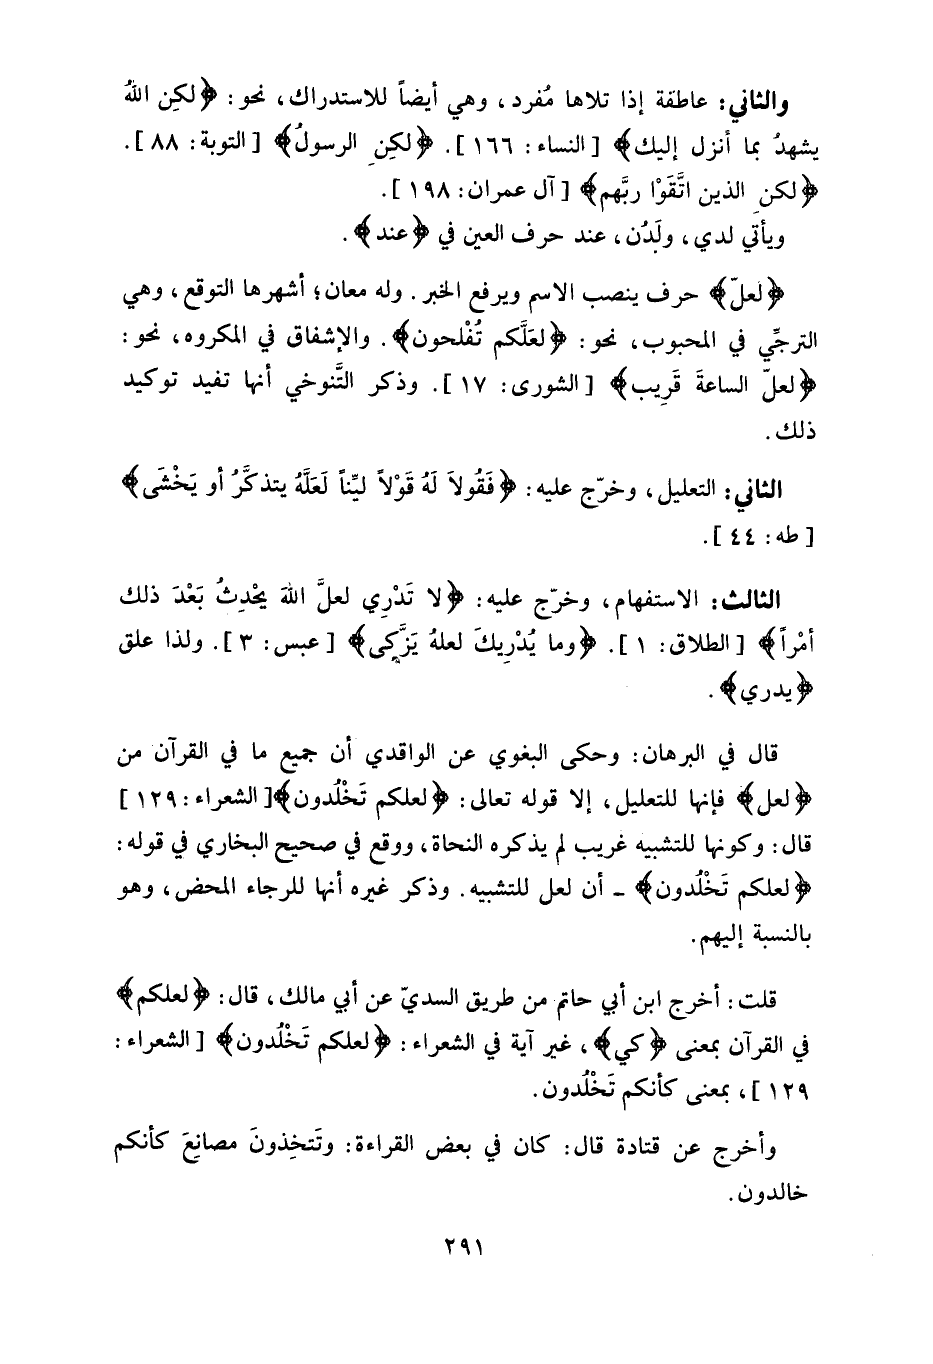 والثاني: عاطفة إذا تلاها مُفرد، وهي أيضاً للاستدراك، نحو: ﴿لكنِ اللهُ
يشهدُ بما أنزل إليك﴾ [النساء: ١٦٦]. ﴿لكنِ الرسولُ﴾ [التوبة: ٨٨].
﴿لكنِ الذين اتَّقَوْا ربَّهم﴾ [آل عمران: ١٩٨].
ويأتي لدي، ولَدُن، عند حرف العين في ﴿عند﴾.
﴿لعلّ﴾ حرف ينصب الاسم ويرفع الخبر. وله معان؛ أشهرها التوقع، وهي
الترجِّي في المحبوب، نحو: ﴿لعَلَّكم تُفْلحون﴾. والإشفاق في المكروه، نحو:
﴿لعلّ الساعةَ قَرِيب﴾ [الشورى: ١٧]. وذكر التَّنوخي أنها تفيد توكيد
ذلك.
الثاني: التعليل، وخرّج عليه: ﴿فَقُولاَ لَهُ قَوْلاً ليِّناً لَعَلَّهُ يتذكَّرُ أو يَخْشَى﴾
[طه: ٤٤].
الثالث: الاستفهام، وخرّج عليه: ﴿لا تَدْرِي لعلَّ اللهَ يحْدِثُ بَعْدَ ذلك
أمْراً﴾ [الطلاق: ١]. ﴿وما يُدْرِيكَ لعلهُ يَزَّكى﴾ [عبس: ٣]. ولذا علق
﴿يدري﴾.
قال في البرهان: وحكى البغوي عن الواقدي أن جميع ما في القرآن من
﴿لعل﴾ فإنها للتعليل، إلا قوله تعالى: ﴿لعلكم تَخْلُدون﴾[الشعراء: ١٢٩]
قال: وكونها للتشبيه غريب لم يذكره النحاة، ووقع في صحيح البخاري في قوله:
﴿لعلكم تَخْلُدون﴾ - أن لعل للتشبيه. وذكر غيره أنها للرجاء المحض، وهو
بالنسبة إليهم.
قلت: أخرج ابن أبي حاتم من طريق السديّ عن أبي مالك، قال: ﴿لعلكم﴾
في القرآن بمعنى ﴿كي﴾، غير آية في الشعراء: ﴿لعلكم تَخْلُدون﴾ [الشعراء:
١٢٩]، بمعنى كأنكم تَخْلُدون.
وأخرج عن قتادة قال: كان في بعض القراءة: وتَتخِذونَ مصانِعَ كأنكم
خالدون.
٢٩١